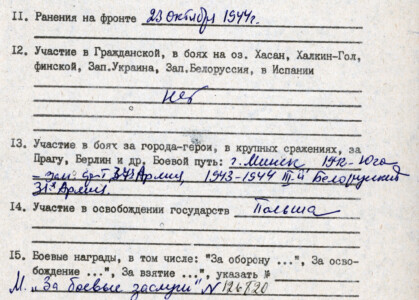 11. Ранения на фронте 23 октября 1944г.
12. Участие в Гражданской, в боях на оз. Хасан, Халкин-Гол,
финской, Зап.Украина, Зап.Белоруссия, в Испании
нет
13. Участие в боях за города-герои, в крупных сражениях, за
Прагу, Берлин и др. Боевой путь: г. Минск 1942- Юго
- зап. Армия, 1943-1944 III-й Белорусский
31я Армия.
14. Участие в освобождении государств Польша
15. Боевые награды, в том числе: "За оборону ...", За осво-
бождение ...", За взятие ...", указать №
М. "За боевые заслуги" N 126720